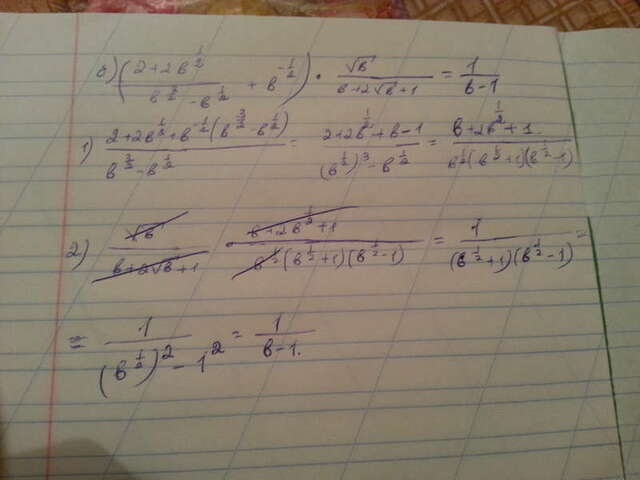 б) ((2+2b^(1/2))/(b^(3/2) - b^(1/2)) + b^(-1/2)) · √b/(b+2√b+1) = 1/(b-1)
1) (2+2b^(1/2)+b^(-1/2)(b^(3/2)-b^(1/2)))/(b^(3/2)-b^(1/2)) = (2+2b^(1/2)+b-1)/((b^(1/2))^3-b^(1/2)) = (b+2b^(1/2)+1)/(b^(1/2)(b^(1/2)+1)(b^(1/2)-1))
2) √b/(b+2√b+1) · (b+2b^(1/2)+1)/(b^(1/2)(b^(1/2)+1)(b^(1/2)-1)) = 1/((b^(1/2)+1)(b^(1/2)-1)) =
= 1/((b^(1/2))^2-1^2) = 1/(b-1).